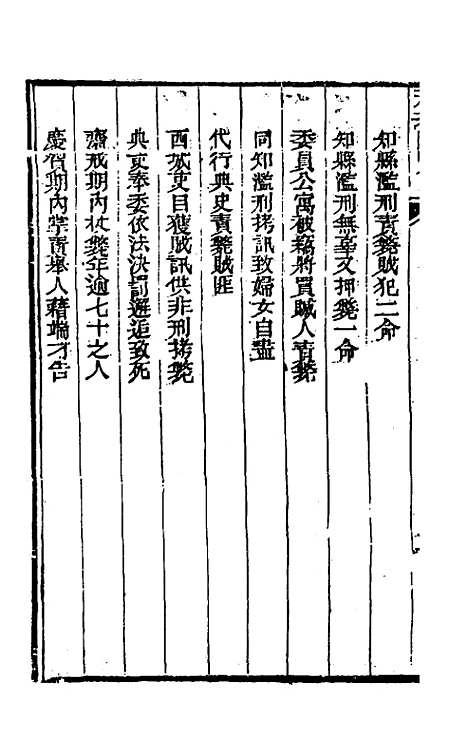 知縣濫刑責斃賊犯二命
知縣濫刑無辜又押斃一命
委員公寓被竊將買贓人責斃
同知濫刑拷訊致婦女自盡
代行典史責斃賊匪
西城吏目獲賊訊供非刑拷斃
典吏奉委依法決罰邂逅致死
齋戒期內杖斃年逾七十之人
慶賀期內擅責舉人藉端刁告